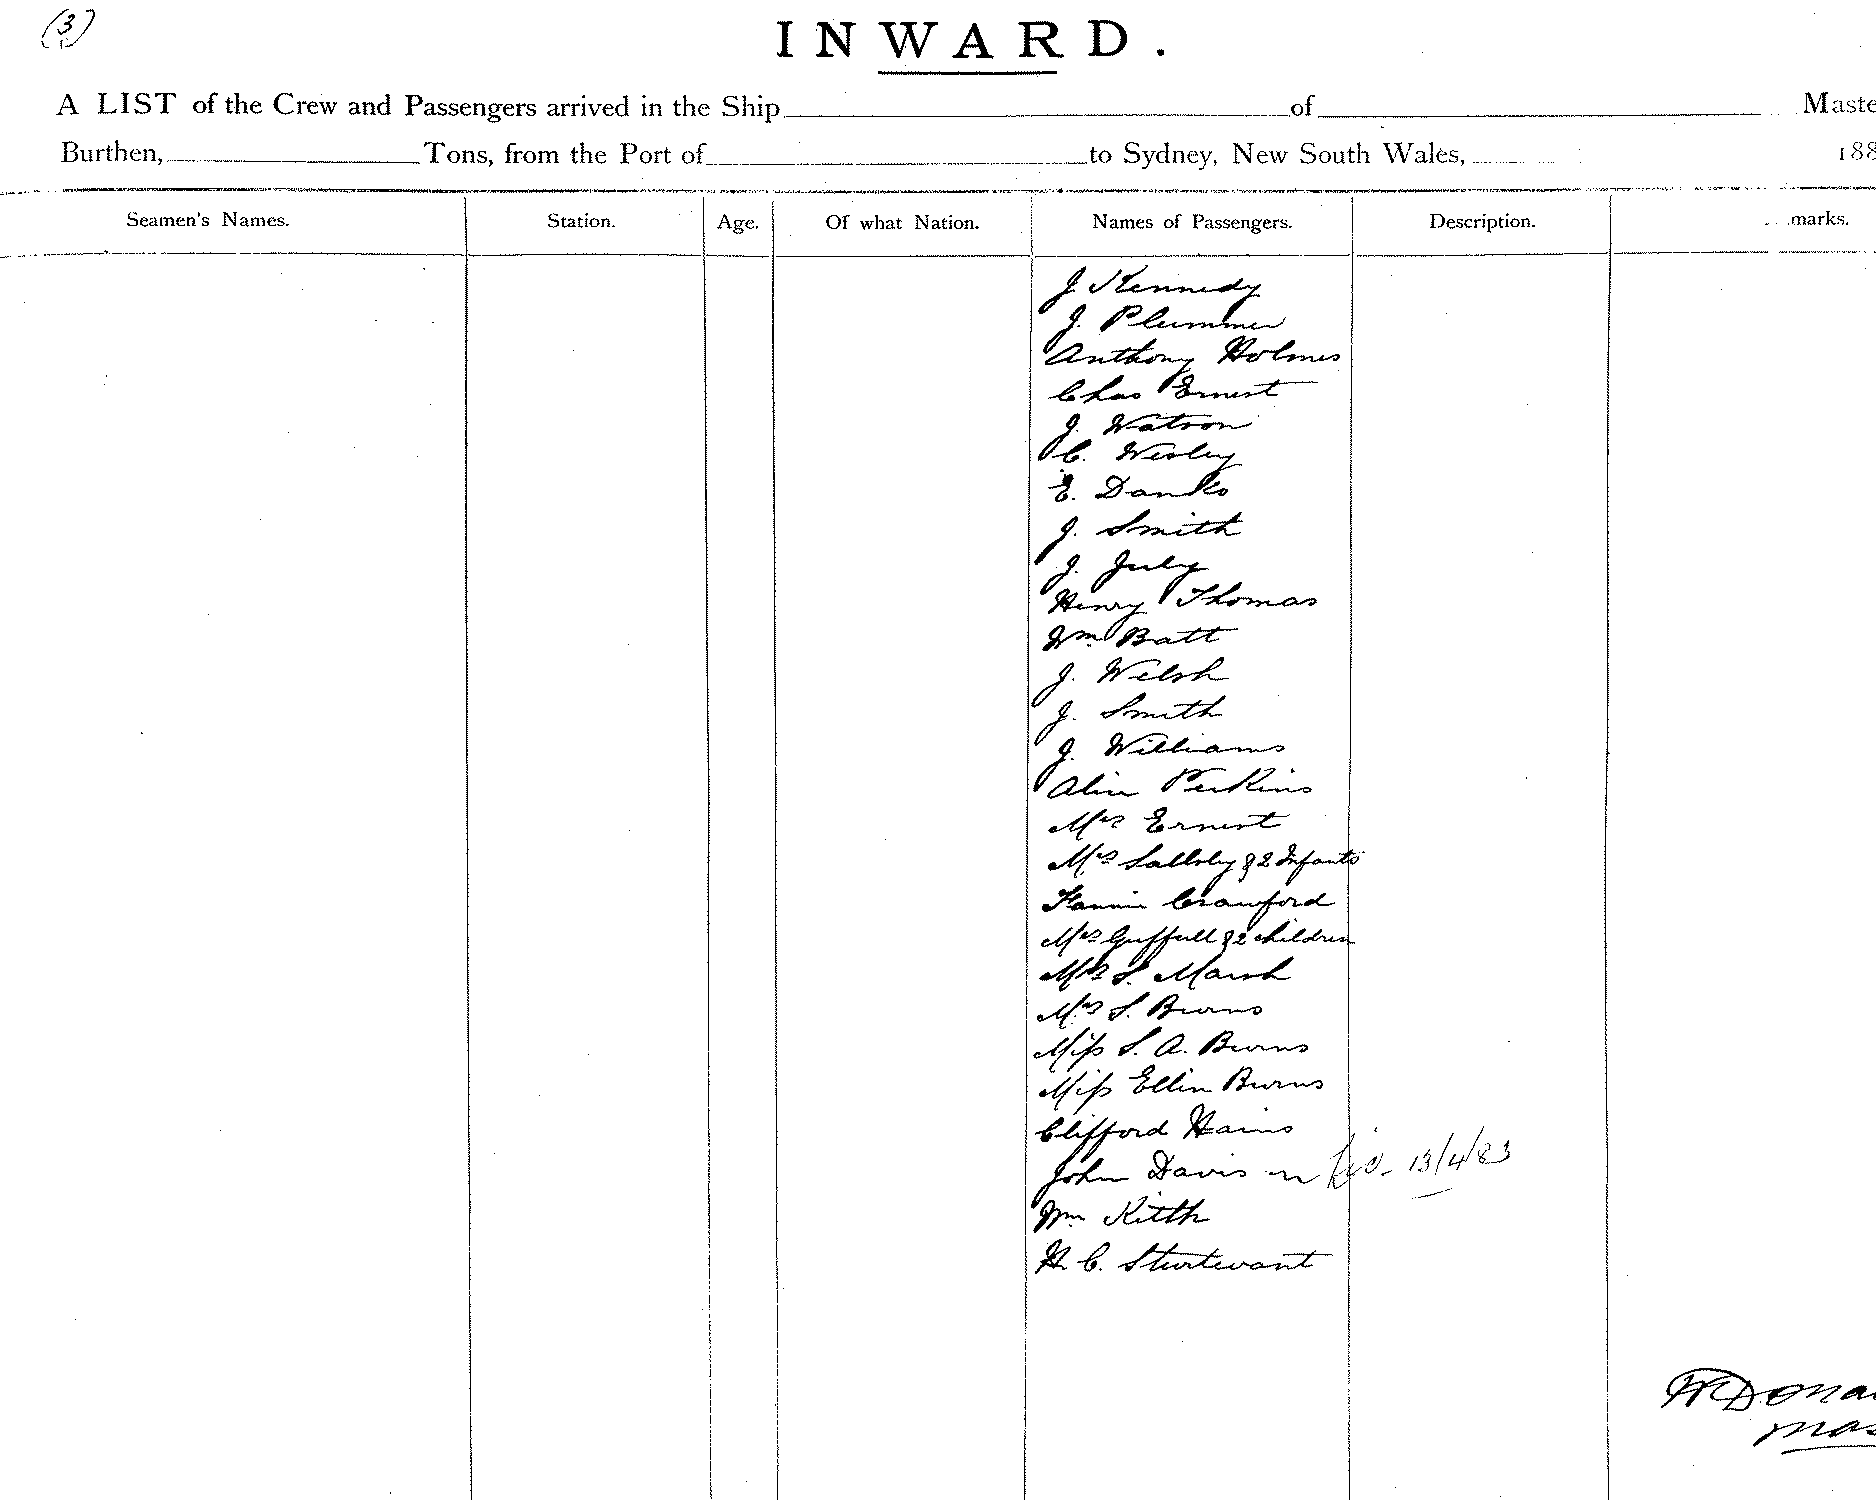 (3)
INWARD.
A LIST of the Crew and Passengers arrived in the Ship of Maste
Burthen, Tons, from the Port of to Sydney, New South Wales, 188
Seamen's Names. Station. Age. Of what Nation. Names of Passengers. Description. marks.
J Kennedy
J. Plummer
Anthony Holmes
Chas Ernest
J. Watson
C. Wesley
E. Danks
J. Smith
J. July
Henry Thomas
Wm. Batt
J. Welsh
J. Smith
J. Williams
Alice Perkins
Mrs Ernest
Mrs & 2 Infants
Fannie Crawford
Mrs & 2 children
Mrs S. Marsh
Mrs S. Burns
Miss S. A. Burns
Miss Ellen Burns
Clifford Hains
John Davis 13/4/83
Wm Kitth
H. C. Sturtevant